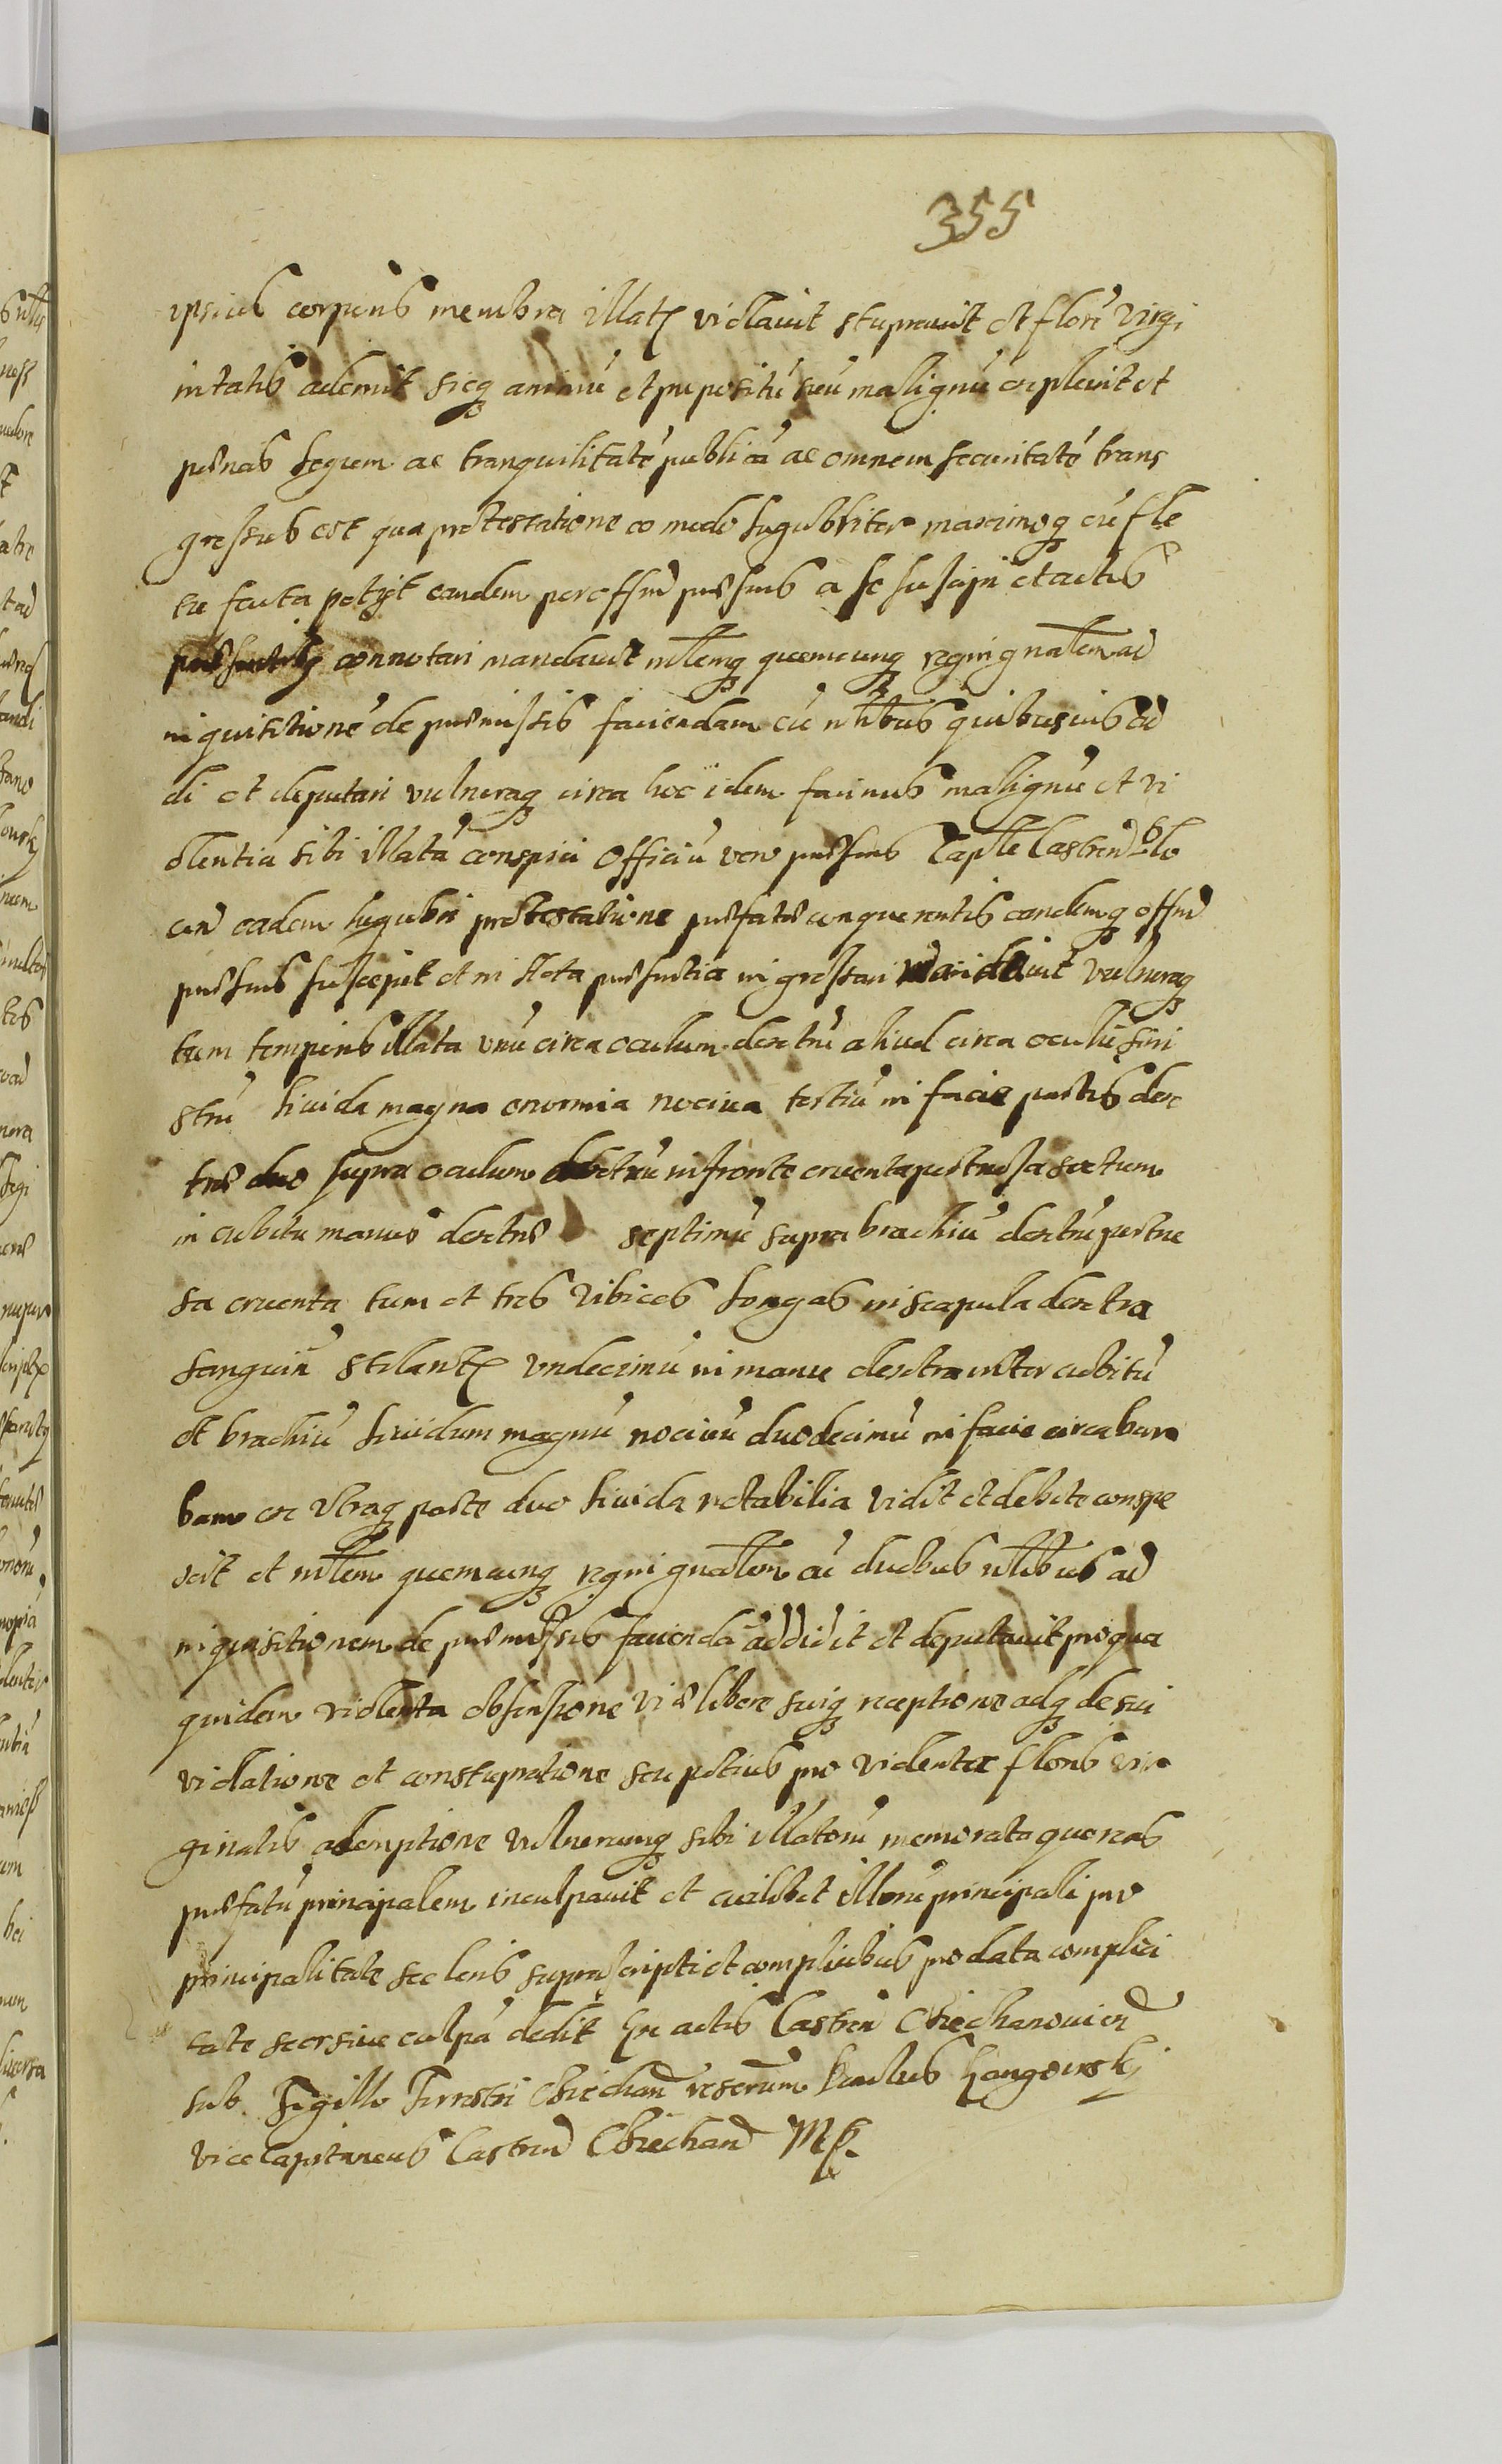 355
ipsius corporis membra illatę violavit stupravit et florē Virgi
nitatis ademit sicq animū et propositū suū malignū explevit et
pœnas legum ac tranquilitatē publicā ac omnem securitatē trans
gressus est qua protestatione eo modo lugubriter maximoq cū fle
tu facta petyt eandem per offm præsens a se suscipi et actis
præsentibq connotari mandavit mltemq quemcunq regni gnalem ad
inquisitionē de præmissis faciendam cū nlibus quibusvis ad
di et deputari vulneraq circa hoc idem facinus malignū et vi
olentiā sibi illatā conspici Officiū vero præsens Caplle Castren
cen eadem lugubri protestatione præfatæ conquerentis eandemq offm
præsens suscepit et in Acta præsentia ingrossari mandavit vulneraq
tum temporis illata unū circa oculum dextrū aliud circa oculū sini
strū livida magna enormia nociva tertiū in facie partis dex
træ duo supra oculum dextrū in fronte cruenta pertusa sextum
in cubitu manus dextræ septimū supra brachiū dextrū pertu
sa cruenta tum et tres Vibices longas in scapula dextra
sanguinē stilantę undecimū in manu dextra inter cubitū
et brachiū lividum magnū nocivū duodecimū in facie circa bar
bam ex utraq parte duo livida notabilia vidit et debite conspe
xit et mltem quemcunq regni gnalem cū duobus nlibus ad
inquisitionem de præmissis faciendā addidit et deputavit pro qua
quidem violenta obsessione viæ libere suiq receptione adq de sui
violatione et constupratione seu potius pro violenta floris vir
ginatis ademptione vulnerumq sibi illatorū memorata querens
præfatū principalem inculpavit et cuilibet illorū principali pro
principalitate sceleris suprascripti et complicibus pro data complici
tate seorsive culpā dedit Ex actis Castren Ciechanovien
sub Sigillo Terrestri Ciechan rescrum Paulus
Vice Capitaneus Castren Ciechan Mp.